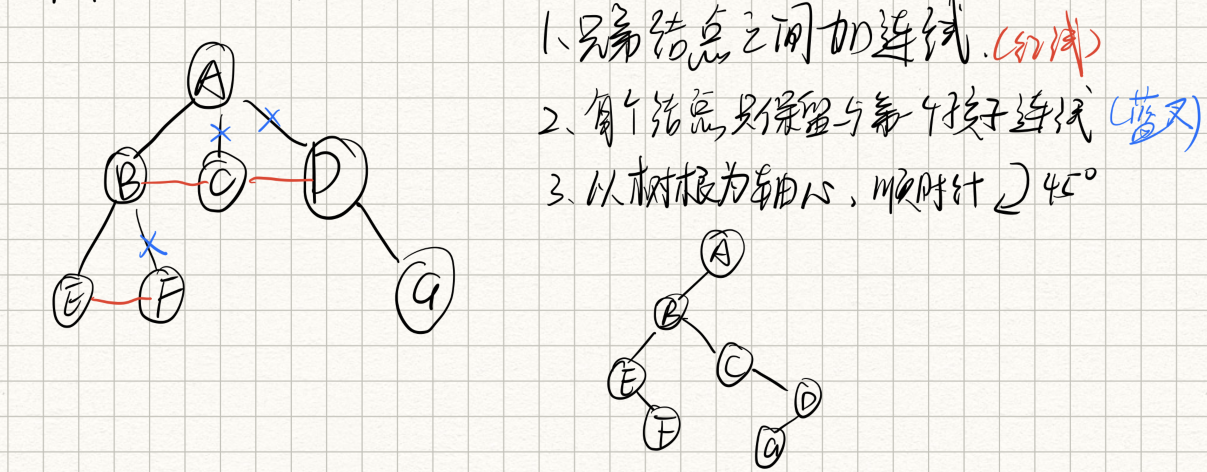 A
B C D
E F G
1、兄弟结点之间加连线.(红线)
2、每个结点只保留与第一个孩子连线(蓝叉)
3、以树根为轴心,顺时针 45°
A
B
E C
F D
G